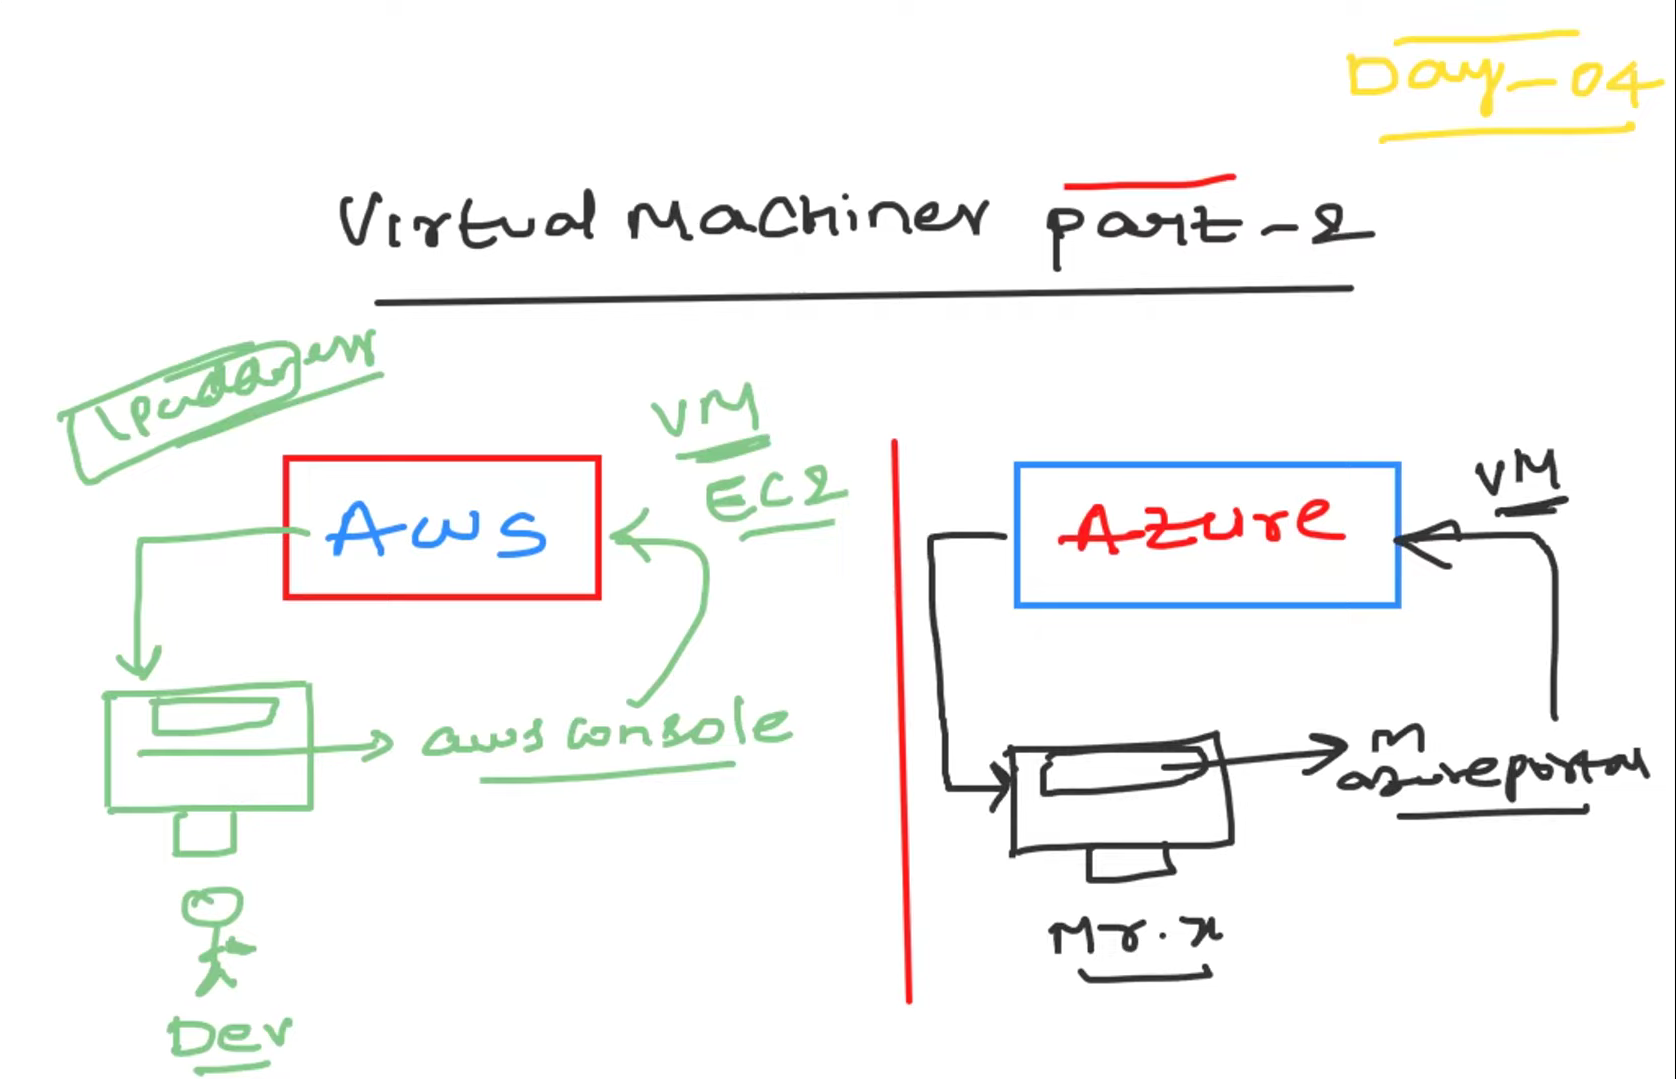 Day-04
Virtual Machines part-2
Ip address
VM
EC2
Aws
aws console
Dev
VM
Azure
M
azure portal
Mr. x